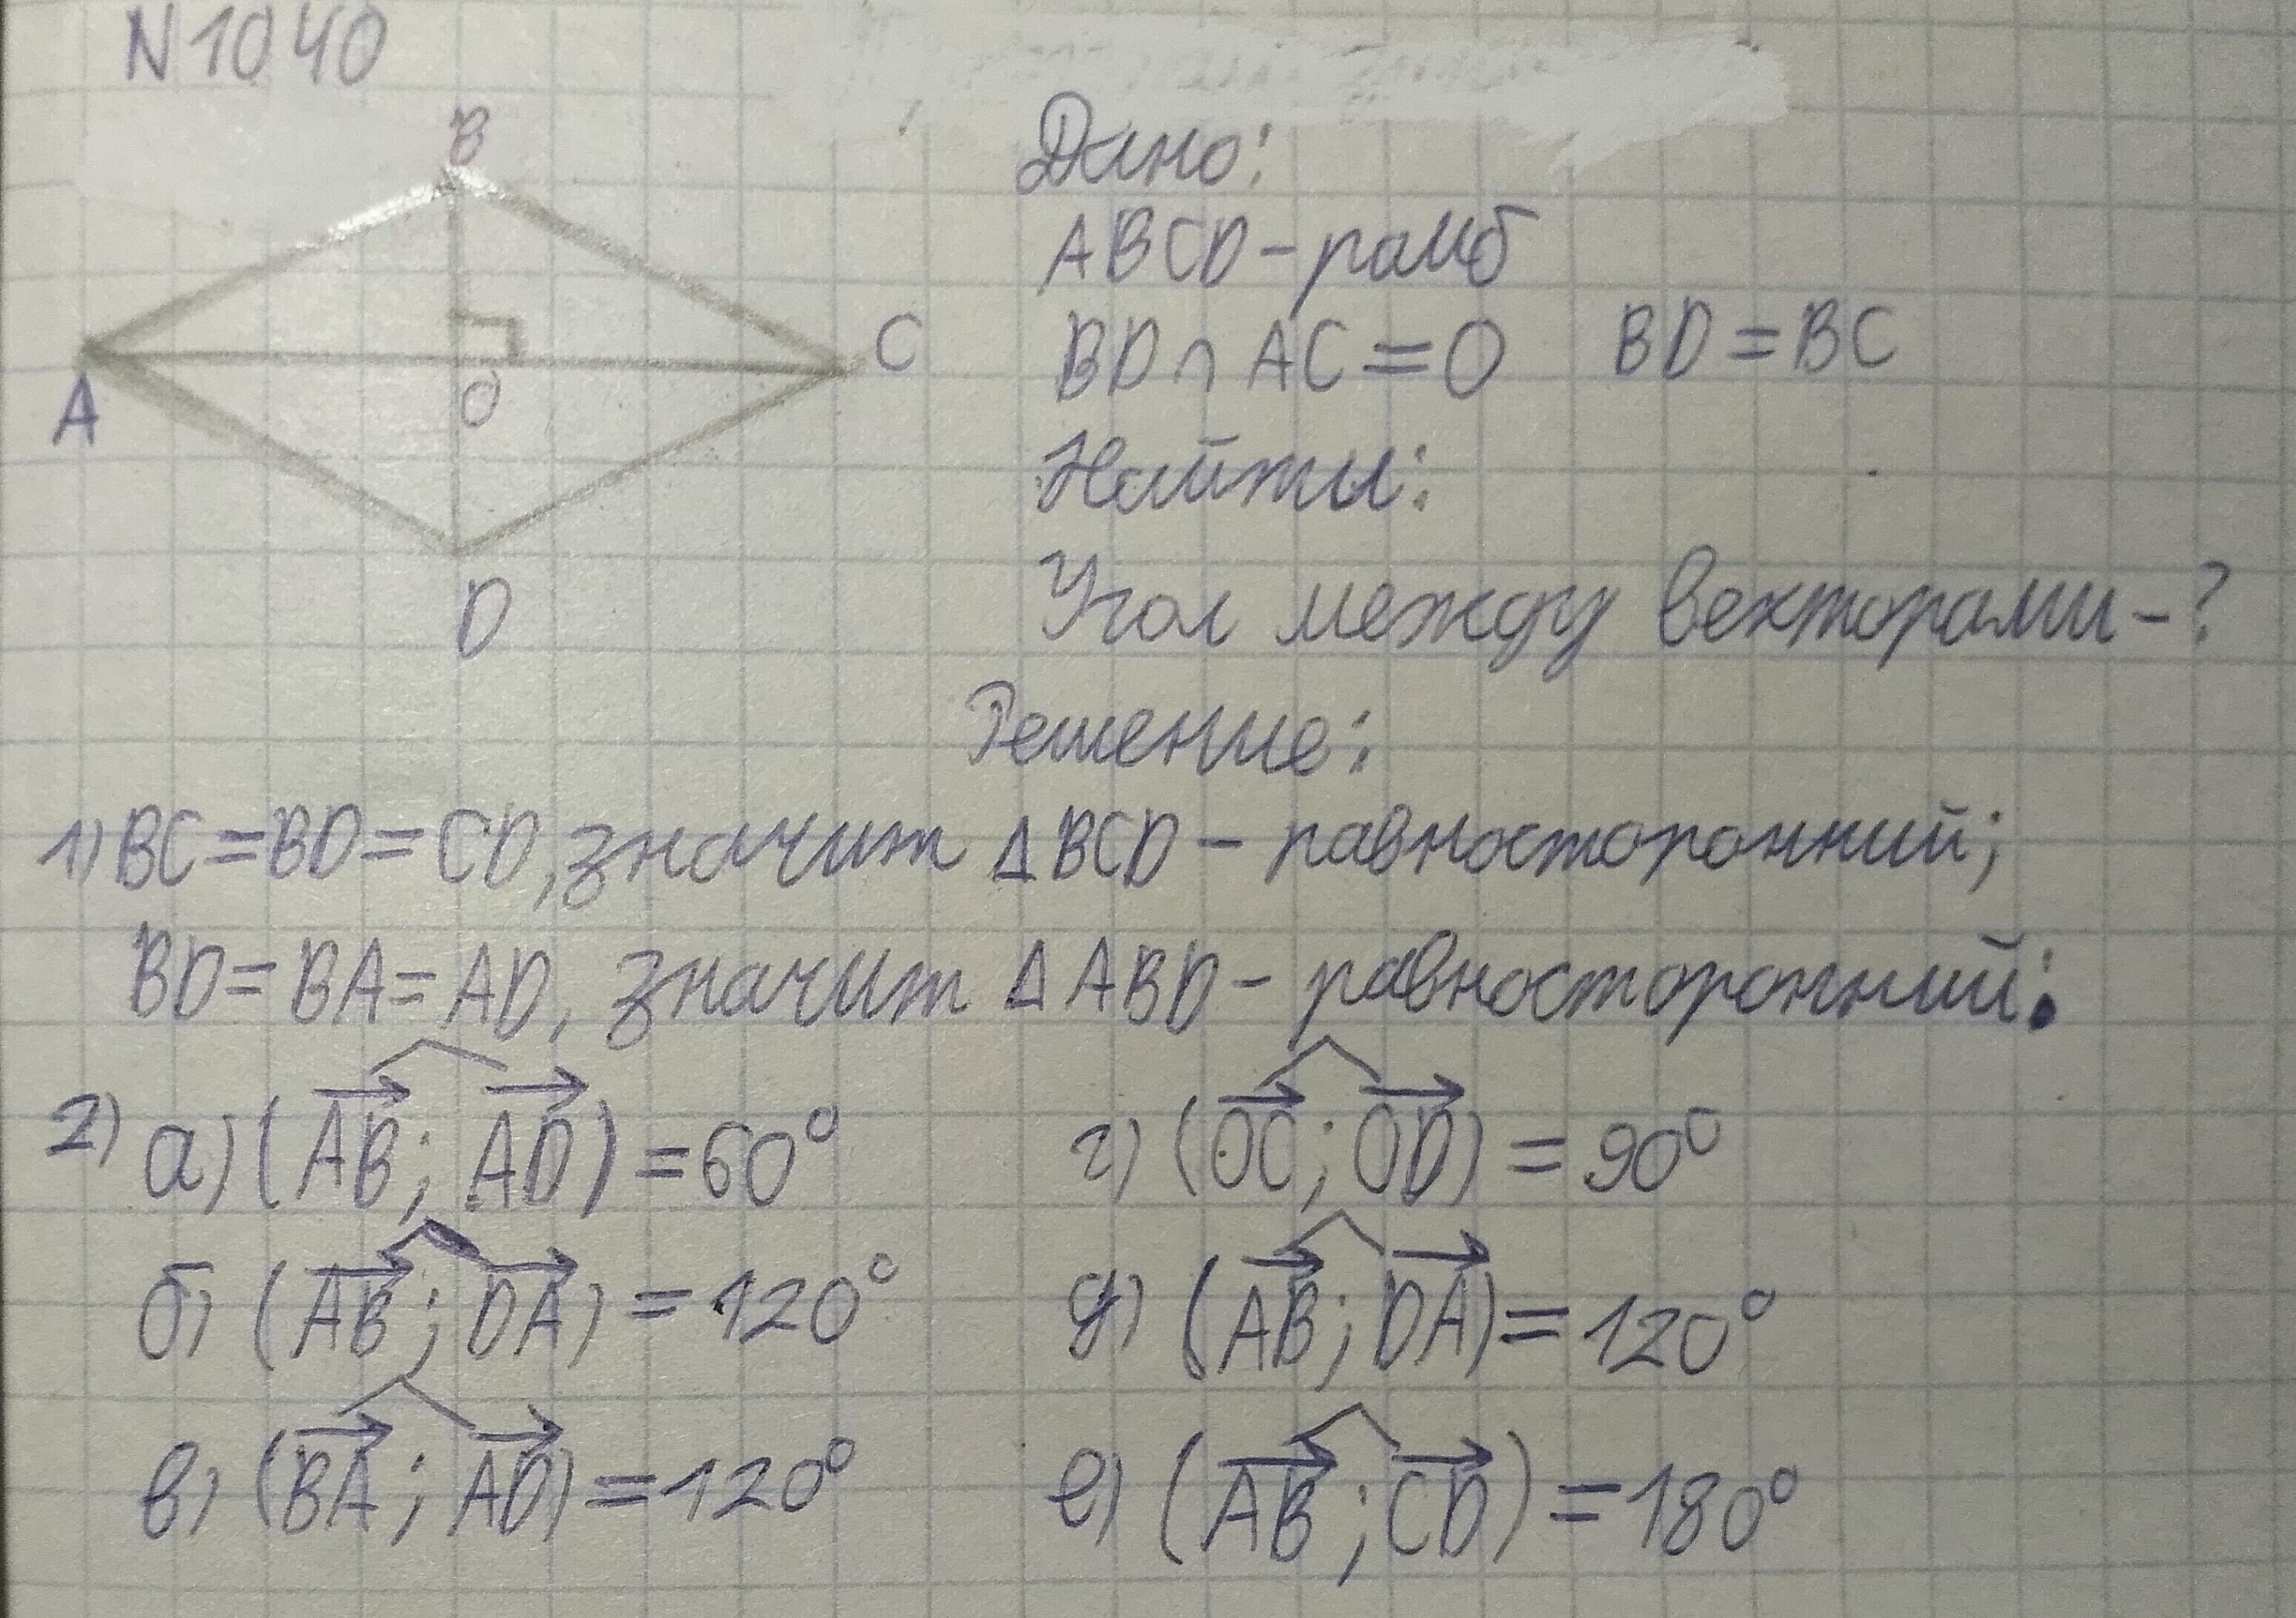 N1040
B
A
O
C
D
Дано:
ABCD – ромб
BD ∩ AC = O BD = BC
Найти:
Угол между векторами – ?
Решение:
1) BC = BD = CD, значит Δ BCD – равносторонний;
BD = BA = AD, значит Δ ABD – равносторонний:
2) а) (AB; AD) = 60° г) (OC; OD) = 90°
б) (AB; DA) = 120° д) (AB; DA) = 120°
в) (BA; AD) = 120° е) (AB; CD) = 180°